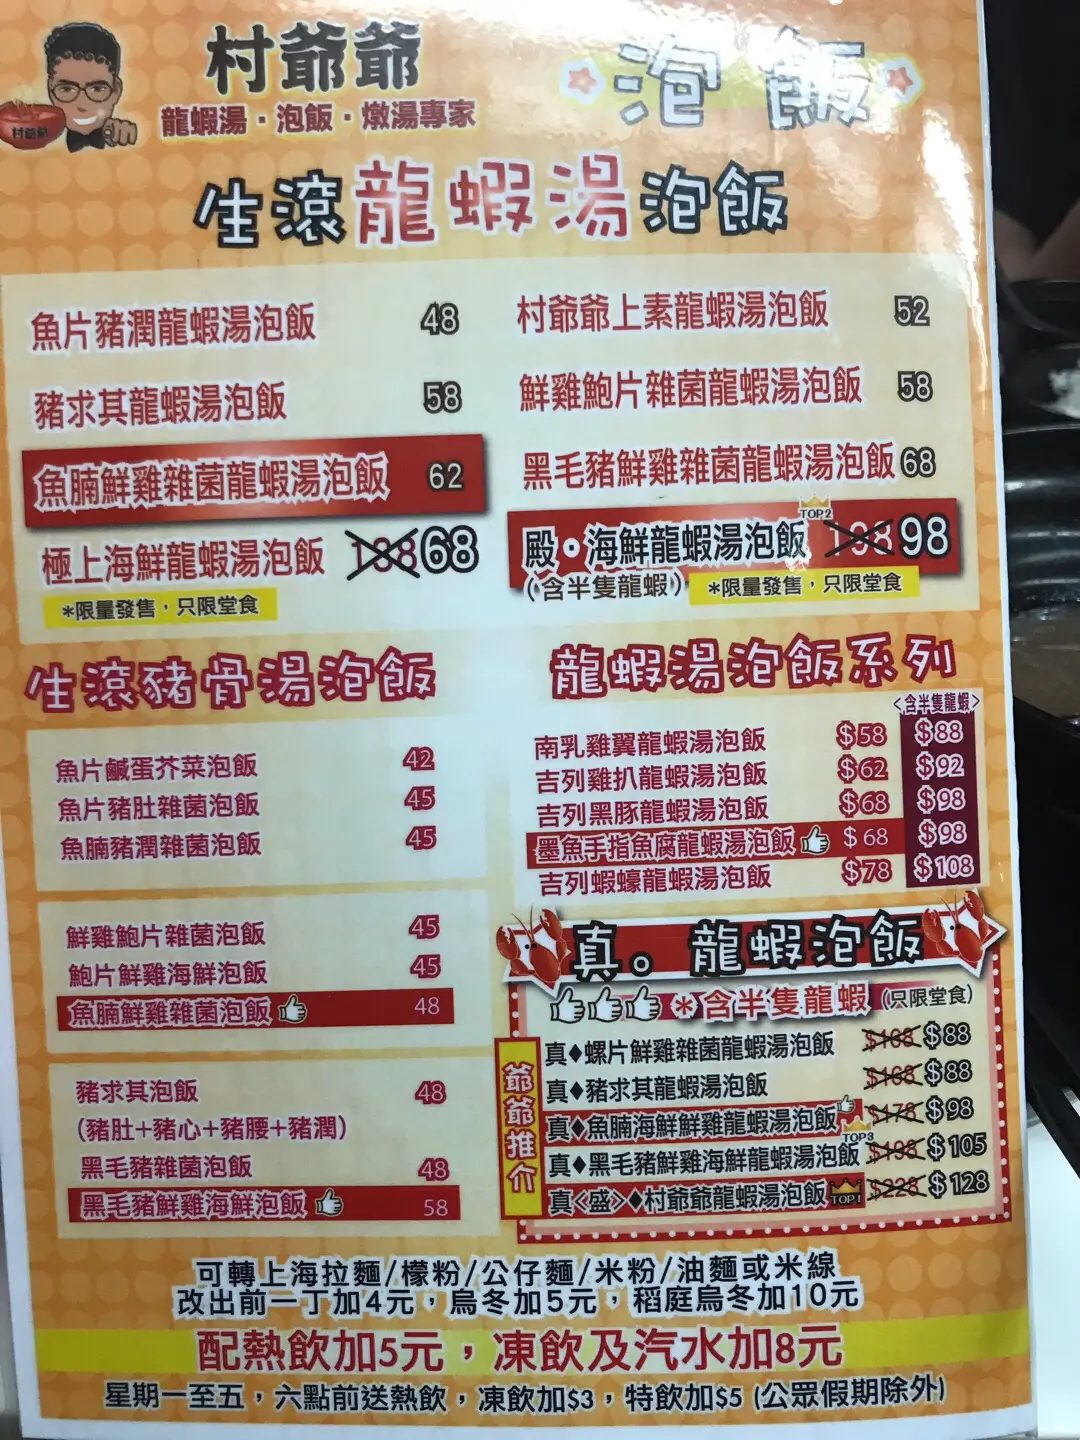 村爺爺
龍蝦湯·泡飯·燉湯專家
村爺爺
泡飯
生滾龍蝦湯泡飯
魚片豬潤龍蝦湯泡飯 48
豬求其龍蝦湯泡飯 58
魚腩鮮雞雜菌龍蝦湯泡飯 62
極上海鮮龍蝦湯泡飯 138 68
*限量發售，只限堂食
村爺爺上素龍蝦湯泡飯 52
鮮雞鮑片雜菌龍蝦湯泡飯 58
黑毛豬鮮雞雜菌龍蝦湯泡飯 68
TOP2
殿•海鮮龍蝦湯泡飯 198 98
(含半隻龍蝦) *限量發售，只限堂食
生滾豬骨湯泡飯
魚片鹹蛋芥菜泡飯 42
魚片豬肚雜菌泡飯 45
魚腩豬潤雜菌泡飯 45
鮮雞鮑片雜菌泡飯 45
鮑片鮮雞海鮮泡飯 45
魚腩鮮雞雜菌泡飯 48
豬求其泡飯 48
(豬肚+豬心+豬腰+豬潤)
黑毛豬雜菌泡飯 48
黑毛豬鮮雞海鮮泡飯 58
龍蝦湯泡飯系列
<含半隻龍蝦>
南乳雞翼龍蝦湯泡飯 $58 $88
吉列雞扒龍蝦湯泡飯 $62 $92
吉列黑豚龍蝦湯泡飯 $68 $98
墨魚手指魚腐龍蝦湯泡飯 $68 $98
吉列蝦蠔龍蝦湯泡飯 $78 $108
真。龍蝦泡飯
*含半隻龍蝦 (只限堂食)
爺爺推介
真♦螺片鮮雞雜菌龍蝦湯泡飯 $168 $88
真♦豬求其龍蝦湯泡飯 $168 $88
真♦魚腩海鮮鮮雞龍蝦湯泡飯 $178 $98
TOP3
真♦黑毛豬鮮雞海鮮龍蝦湯泡飯 $198 $105
真<盛>♦村爺爺龍蝦湯泡飯 TOP1 $228 $128
可轉上海拉麵/檬粉/公仔麵/米粉/油麵或米線
改出前一丁加4元，烏冬加5元，稻庭烏冬加10元
配熱飲加5元，凍飲及汽水加8元
星期一至五，六點前送熱飲，凍飲加$3，特飲加$5 (公眾假期除外)